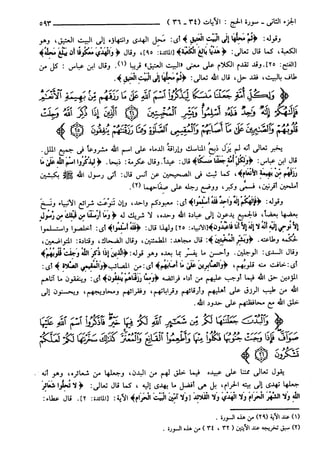 الجزء الثاني - سورة الحج : الآيات (٣٤ - ٣٦) ٥٩٣
وقوله: ﴿ثُمَّ مَحِلُّهَا إِلَى الْبَيْتِ الْعَتِيقِ﴾ أي: محل الهدي وانتهاؤه إلى البيت العتيق، وهو
الكعبة، كما قال تعالى: ﴿هَدْيًا بَالِغَ الْكَعْبَةِ﴾ [المائدة: ٩٥]، وقال ﴿وَالْهَدْيَ مَعْكُوفًا أَن يَبْلُغَ مَحِلَّهُ﴾
[الفتح: ٢٥]. وقد تقدم الكلام على معنى «البيت العتيق» قريبا (١). وقال ابن عباس : كل من
طاف بالبيت، فقد حل، قال الله تعالى: ﴿ثُمَّ مَحِلُّهَا إِلَى الْبَيْتِ الْعَتِيقِ﴾.
﴿وَلِكُلِّ أُمَّةٍ جَعَلْنَا مَنسَكًا لِّيَذْكُرُوا اسْمَ اللَّهِ عَلَىٰ مَا رَزَقَهُم مِّن بَهِيمَةِ الْأَنْعَامِ
فَإِلَٰهُكُمْ إِلَٰهٌ وَاحِدٌ فَلَهُ أَسْلِمُوا وَبَشِّرِ الْمُخْبِتِينَ ﴿٣٤﴾ الَّذِينَ إِذَا ذُكِرَ اللَّهُ وَجِلَتْ
قُلُوبُهُمْ وَالصَّابِرِينَ عَلَىٰ مَا أَصَابَهُمْ وَالْمُقِيمِي الصَّلَاةِ وَمِمَّا رَزَقْنَاهُمْ يُنفِقُونَ ﴿٣٥﴾
يخبر تعالى أنه لم يزل ذبح المناسك وإراقة الدماء على اسم الله مشروعا في جميع الملل.
قال ابن عباس: ﴿وَلِكُلِّ أُمَّةٍ جَعَلْنَا مَنسَكًا﴾ قال: عيداً. وقال عكرمة: ذبحا. ﴿لِّيَذْكُرُوا اسْمَ اللَّهِ عَلَىٰ مَا
رَزَقَهُم مِّن بَهِيمَةِ الْأَنْعَامِ﴾، كما ثبت في الصحيحين عن أنس قال: أُتي رسول الله ﷺ بكبشين
أملحين أقرنين، فسمى وكبر، ووضع رجله على صفاحهما (٢).
وقوله: ﴿فَإِلَٰهُكُمْ إِلَٰهٌ وَاحِدٌ فَلَهُ أَسْلِمُوا﴾ أي: معبودكم واحد، وإن تنوعت شرائع الأنبياء ونسخ
بعضها بعضاً، فالجميع يدعون إلى عبادة الله وحده، لا شريك له ﴿وَمَا أَرْسَلْنَا مِن قَبْلِكَ مِن رَّسُولٍ
إِلَّا نُوحِي إِلَيْهِ أَنَّهُ لَا إِلَٰهَ إِلَّا أَنَا فَاعْبُدُونِ﴾ [الأنبياء: ٢٥] ولهذا قال: ﴿فَلَهُ أَسْلِمُوا﴾ أي: أخلصوا واستسلموا
لحكمه وطاعته. ﴿وَبَشِّرِ الْمُخْبِتِينَ﴾ قال مجاهد: المطمئنين، وقال الضحاك، وقتادة: المتواضعين،
وقال السدي: الوجلين. وأحسن ما يفسر بما بعده وهو قوله: ﴿الَّذِينَ إِذَا ذُكِرَ اللَّهُ وَجِلَتْ قُلُوبُهُمْ﴾
أي:خافت منه قلوبهم، ﴿وَالصَّابِرِينَ عَلَىٰ مَا أَصَابَهُمْ﴾ أي: من المصائب﴿وَالْمُقِيمِي الصَّلَاةِ﴾ أي:
المؤدين حق الله فيما أوجب عليهم من أداء فرائضه ﴿وَمِمَّا رَزَقْنَاهُمْ يُنفِقُونَ﴾ أي: وينفقون ما آتاهم
الله من طيب الرزق على أهليهم وأرقائهم وقراباتهم، وفقرائهم ومحاويجهم، ويحسنون إلى
خلق الله مع محافظتهم على حدود الله.
﴿وَالْبُدْنَ جَعَلْنَاهَا لَكُم مِّن شَعَائِرِ اللَّهِ لَكُمْ فِيهَا خَيْرٌ فَاذْكُرُوا اسْمَ اللَّهِ عَلَيْهَا
صَوَافَّ فَإِذَا وَجَبَتْ جُنُوبُهَا فَكُلُوا مِنْهَا وَأَطْعِمُوا الْقَانِعَ وَالْمُعْتَرَّ كَذَٰلِكَ سَخَّرْنَاهَا لَكُمْ لَعَلَّكُمْ
تَشْكُرُونَ ﴿٣٦﴾
يقول تعالى ممتنا على عبيده فيما خلق لهم من البدن، وجعلها من شعائره، وهو أنه
جعلها تهدى إلى بيته الحرام، بل هي أفضل ما يهدى إليه ، كما قال تعالى: ﴿لَا تُحِلُّوا شَعَائِرَ
اللَّهِ وَلَا الشَّهْرَ الْحَرَامَ وَلَا الْهَدْيَ وَلَا الْقَلَائِدَ وَلَا آمِّينَ الْبَيْتَ الْحَرَامَ﴾ الآية: [المائدة: ٢]. قال عطاء:
(١) عند الآية (٢٩) من هذه السورة .
(٢) سبق تخريجه عند الآيتين (٣٢ ، ٣٤) من هذه السورة .